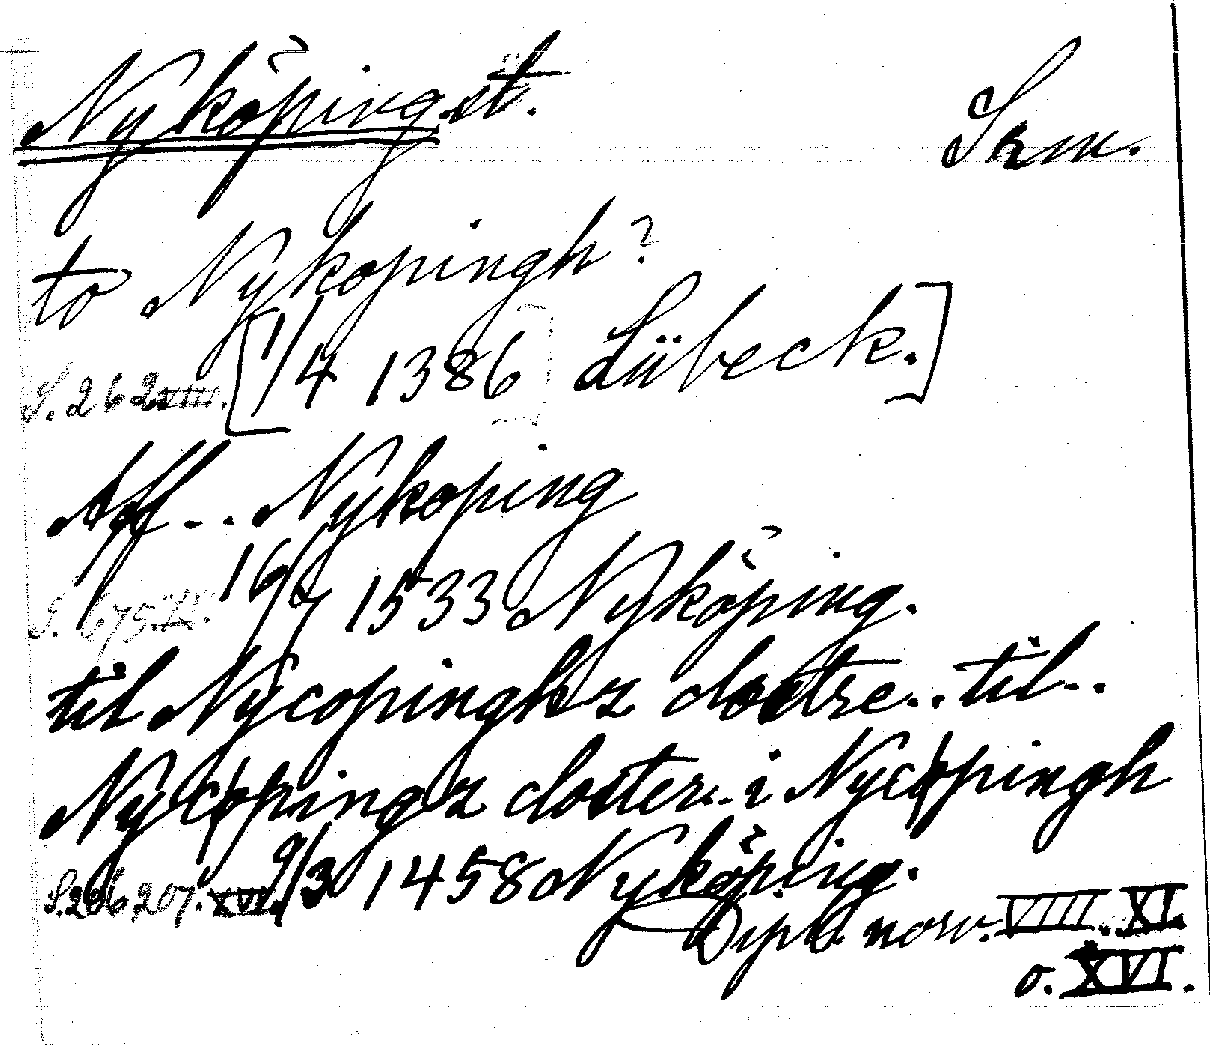 Nyköping st. Srm.
to Nykopingh?
S. 262 VIII. [1/4 1386 Lübeck.]
Aff .. Nykoping
S. 675. 16/7 1533 Nyköping.
til Nycopinghz clostre .. til ..
Nycøpingz closter .. i Nycøpingh
S. 206 207. XVI. 9/3 1458 Nyköping.
Dipl. norv. VIII. XI.
o. XVI.